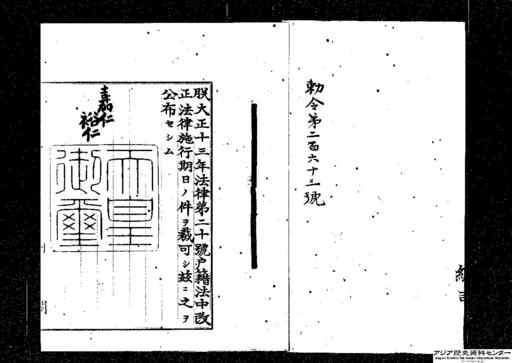 勅令第二百六十三號
朕大正十三年法律第二十號戸籍法中改
正法律施行期日ノ件ヲ裁可シ茲ニ之ヲ
公布セシム
嘉仁
裕仁
天皇
御璽
アジア歴史資料センター
Japan Center for Asian Historical Records